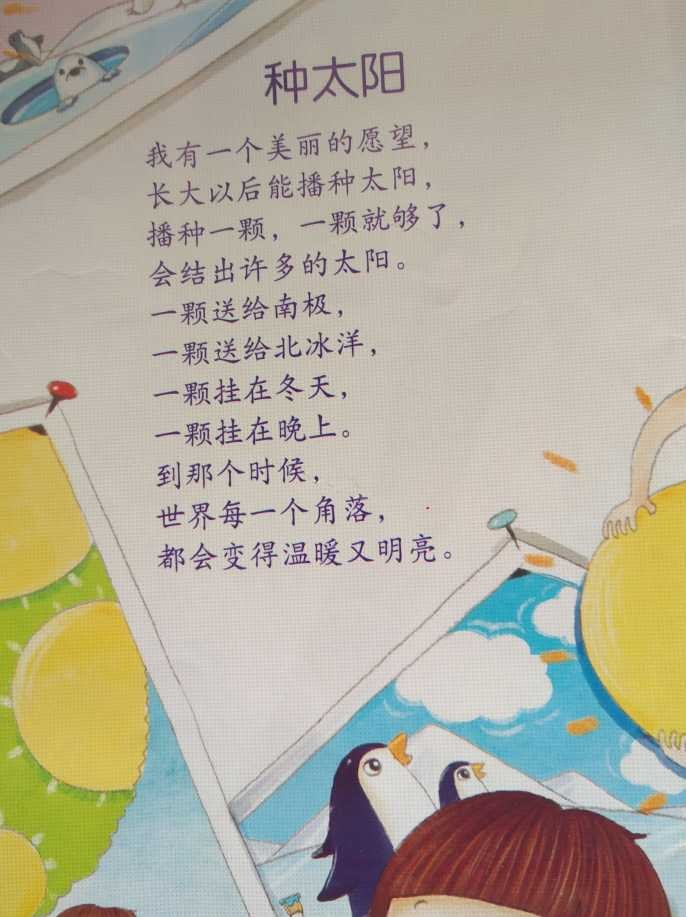 种太阳
我有一个美丽的愿望，
长大以后能播种太阳，
播种一颗，一颗就够了，
会结出许多的太阳。
一颗送给南极，
一颗送给北冰洋，
一颗挂在冬天，
一颗挂在晚上。
到那个时候，
世界每一个角落，
都会变得温暖又明亮。